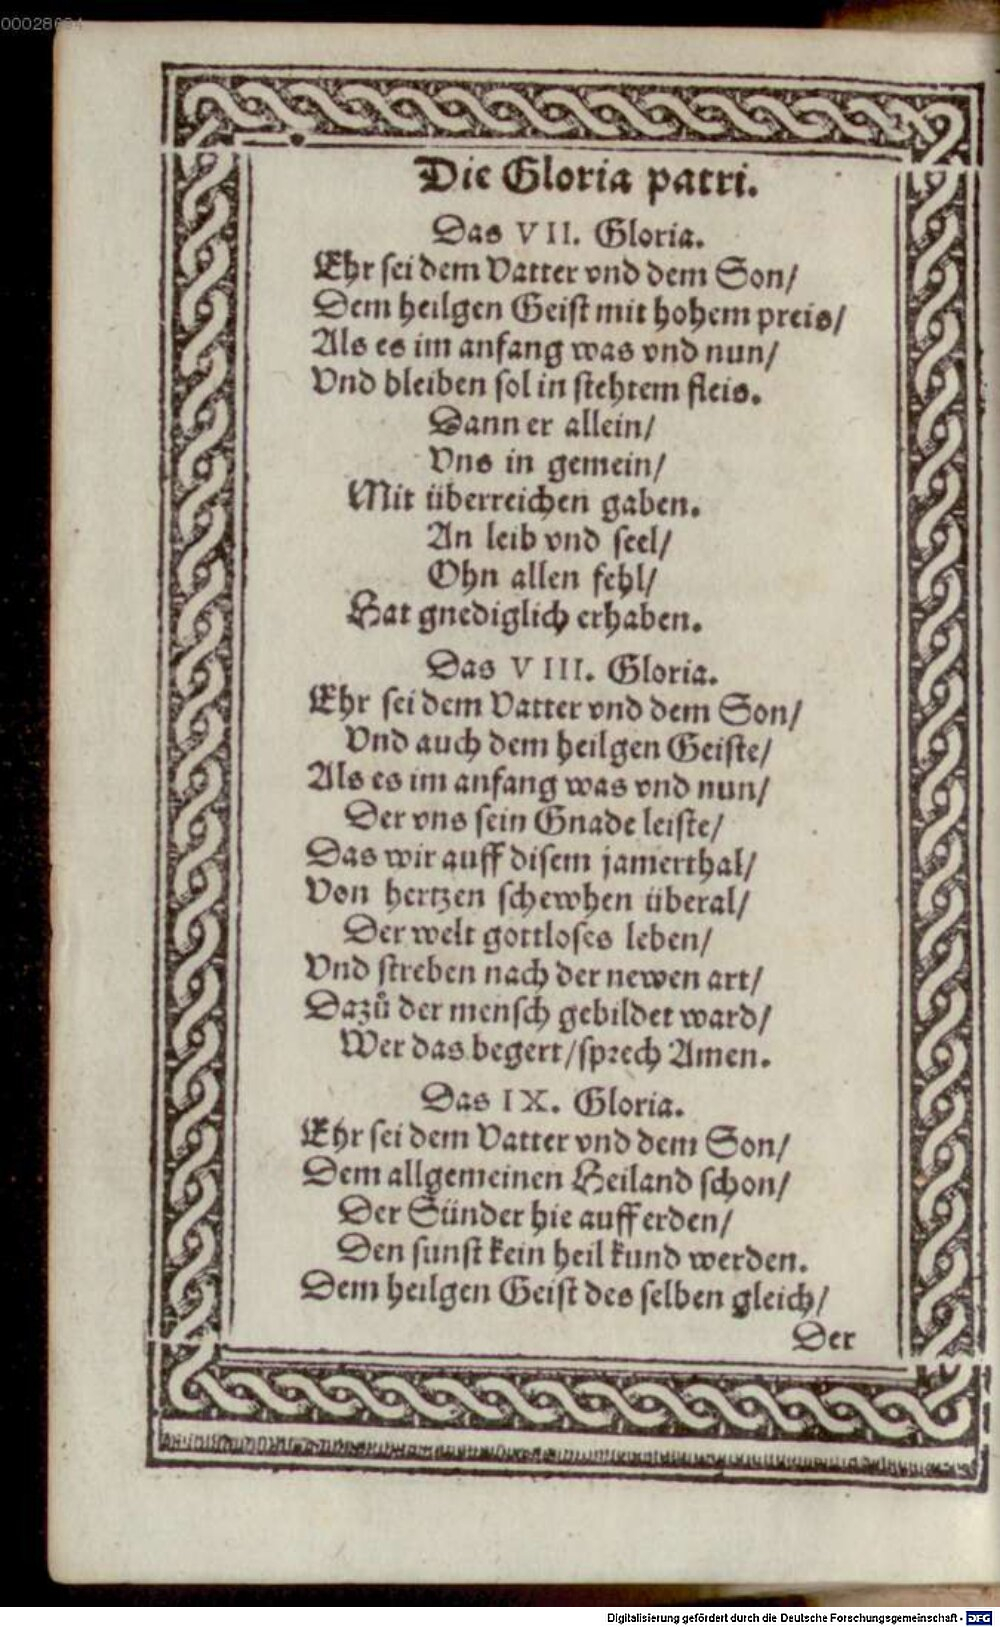 00028694
Die Gloria patri.
Das VII. Gloria.
Ehr sei dem Vatter vnd dem Son/
Dem heilgen Geist mit hohem preis/
Als es im anfang was vnd nun/
Vnd bleiben sol in stehtem fleis.
Dann er allein/
Vns in gemein/
Mit überreichen gaben.
An leib vnd seel/
Ohn allen fehl/
Hat gnediglich erhaben.
Das VIII. Gloria.
Ehr sei dem Vatter vnd dem Son/
Vnd auch dem heilgen Geiste/
Als es im anfang was vnd nun/
Der vns sein Gnade leiste/
Das wir auff disem jamerthal/
Von hertzen schewhen überal/
Der welt gottloses leben/
Vnd streben nach der newen art/
Dazů der mensch gebildet ward/
Wer das begert/sprech Amen.
Das IX. Gloria.
Ehr sei dem Vatter vnd dem Son/
Dem allgemeinen Heiland schon/
Der Sünder hie auff erden/
Den sunst kein heil kund werden.
Dem heilgen Geist des selben gleich/
Der
Digitalisierung gefördert durch die Deutsche Forschungsgemeinschaft - DFG